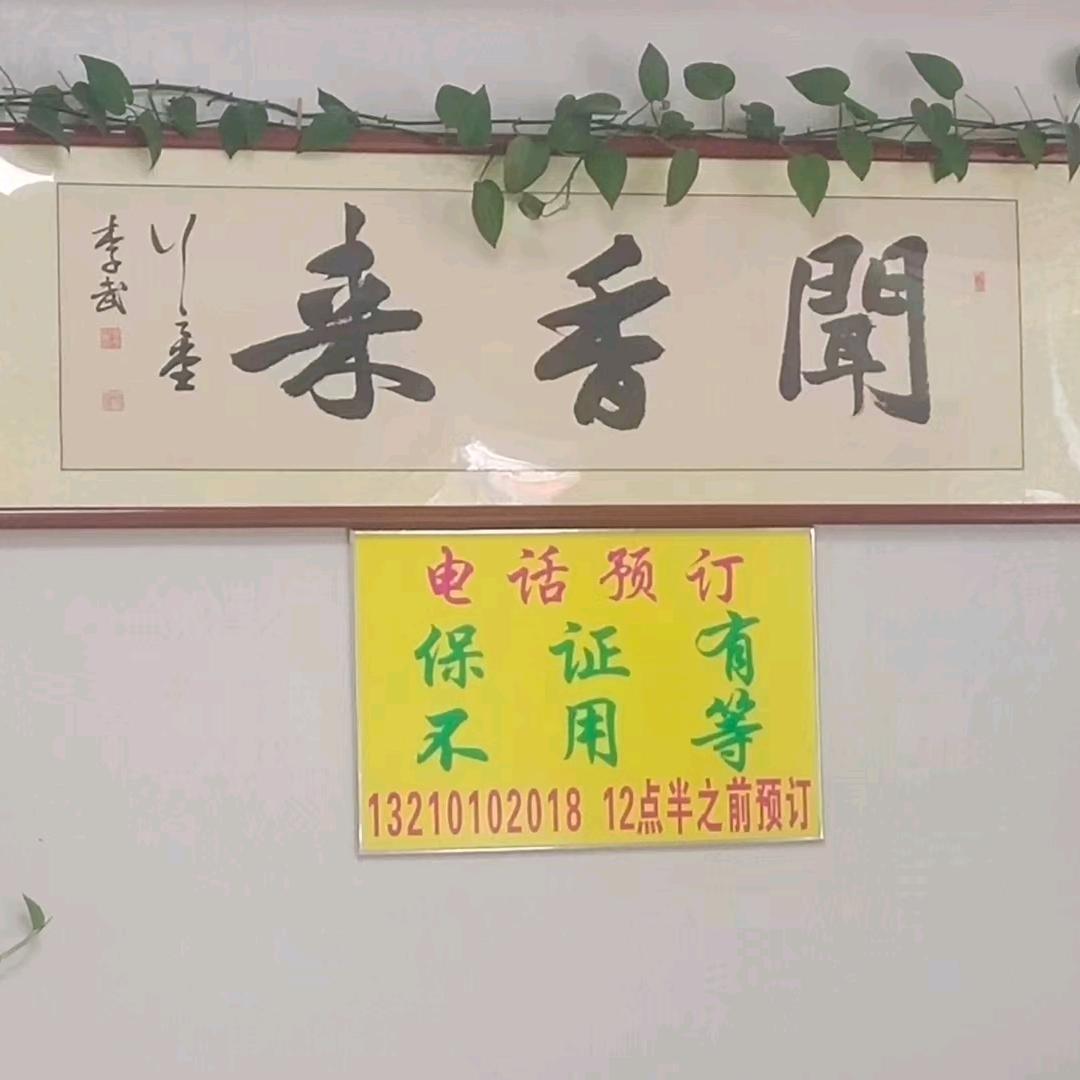 聞香来
李武
电话预订
保证有
不用等
13210102018 12点半之前预订